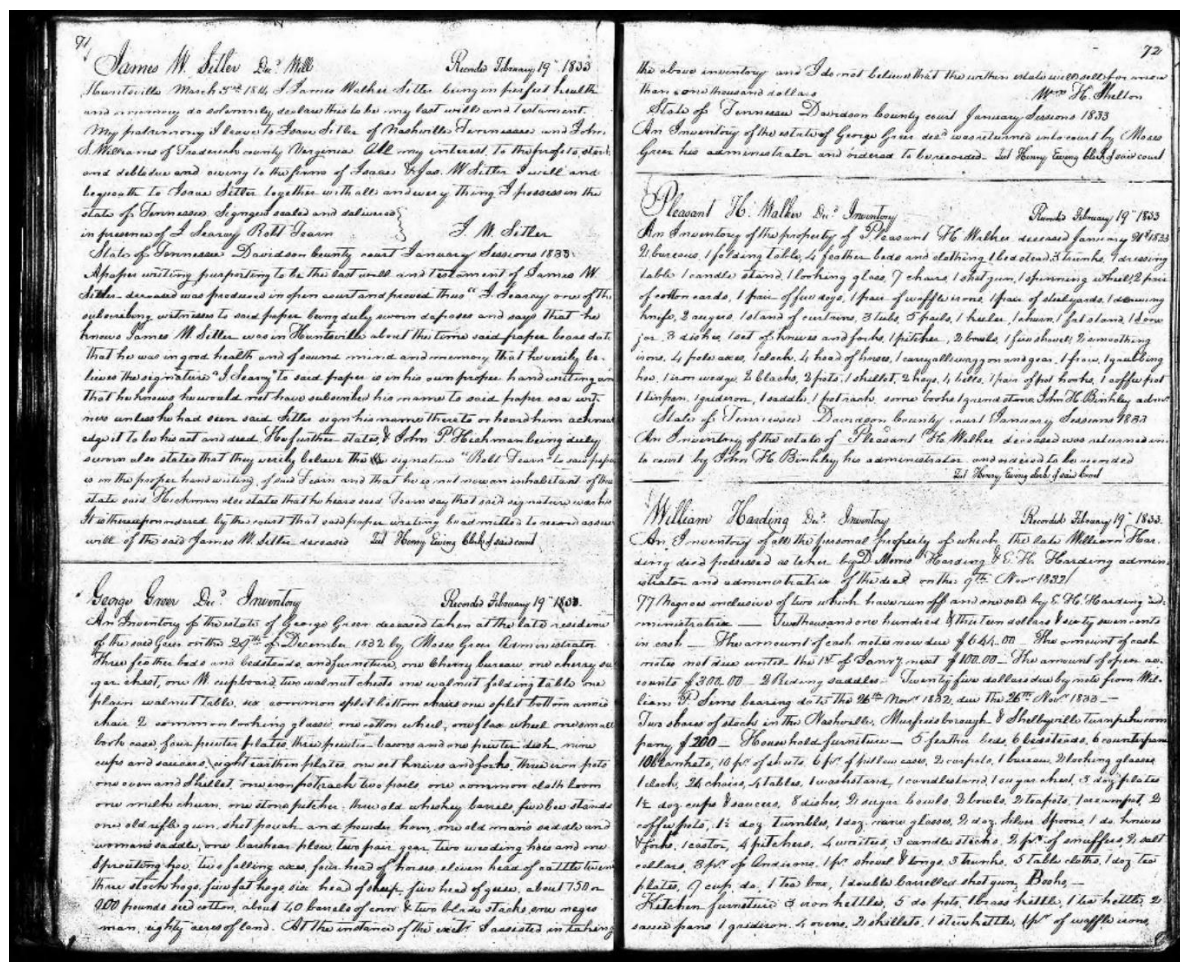 71
James W. Sitler Decd Will Recorded February 19th 1833
Huntsville March 3rd 1814 I James Walker Sitler being in perfect health
and memory do solemnly declare this to be my last will and testament.
My patrimony I leave to Isaac Sitler of Nashville Tennessee and John
S. Williams of Frederick county Virginia All my interest, to the profits, stock
and debts due and owing to the firm of Isaac & Jas. W Sitler I will and
bequeath to Isaac Sitler together with all and every thing I possess in the
state of Tennessee. Signed sealed and delivered
in presence of J Searcy Robt Fearn J. W. Sitler
State of Tennessee Davidson County court January Sessions 1833
A paper writing purporting to be the last will and testament of James W
Sitler deceased was produced in open court and proved thus " J. Searcy one of the
subscribing witnesses to said paper being duly sworn deposes and says that he
knows James W. Sitler was in Huntsville about the time said paper bears date
that he was in good health and of sound mind and memory that he verily be-
lieves the signature "J. Searcy" to said paper is in his own proper hand writing and
that he knows he would not have subscribed his name to said paper as a wit-
ness unless he had seen said Sitler sign his name thereto or heard him acknowl
edge it to be his act and deed. He further states, & John P. Hickman being duly
sworn also states that they verily believe the signature "Robt Fearn" to said paper
is in the proper hand writing of said Fearn and that he is not now an inhabitant of this
state said Hickman also states that he hears said Fearn say that said signature was his
It is thereupon ordered by the court that said paper writing be admitted to record as the
will of the said James W. Sitler deceased Test Henry Ewing Clerk of said court
George Greer Decd Inventory Recorded February 19th 1833.
An Inventory of the estate of George Greer deceased taken at the late residence
of the said Greer on the 29th of December 1832 by Moses Greer Administrator
Three feather beds and bedsteads, and furniture, one Cherry bureau, one cherry su-
gar chest, one W cupboard, two walnut chests one walnut folding table one
plain walnut table, six common split bottom chairs one split bottom armed
chair 2 common looking glasses, one cotton wheel, one flax wheel one small
book case, four pewter plates, three pewter basons and one pewter dish, nine
cups and saucers, eight earthen plates, one set knives and forks, three iron pots
one oven and skillet, one iron pot rack two pails, one common cloth loom
one milk churn, one stone pitcher, three old whiskey barrels, five bee stands
one old rifle gun, shot pouch and powder horn, one old man's saddle and
woman's saddle, one barshear plow, two pair gear, two weeding hoes and one
sprouting hoe, two falling axes, four head of horses, eleven head of cattle twenty
three stock hogs, five fat hogs, six head of sheep, five head of geese, about 750 or
900 pounds seed cotton, about 40 barrels of corn & two blade stacks, one negro
man, eighty acres of land. At the instance of the I assisted in taking
72
the above inventory and I do not believe that the within estate will sell for more
than one thousand dollars Wm H. Shelton
State of Tennessee Davidson County court January Sessions 1833
An Inventory of the estate of George Greer decd was returned into court by Moses
Greer his administrator and ordered to be recorded. Test Henry Ewing Clerk of said court
Pleasant H. Walker Decd Inventory Recorded February 19th 1833
An Inventory of the property of Pleasant H. Walker deceased January 21st 1833
2 bureaus, 1 folding table, 4 feather beds and clothing 1 bedstead, 3 trunks, 1 dressing
table 1 candle stand, 1 looking glass, 7 chairs, 1 shot gun, 1 spinning wheel, 2 pair
of cotton cards, 1 pair of fire dogs, 1 pair of waffle irons, 1 pair of steelyards, 1 drawing
knife, 2 augers, 1 stand of curtains, 3 tubs, 5 pails, 1 keeler, 1 churn, 1 fat stand, 1 stone
jar, 3 dishes, 1 set of knives and forks, 1 pitcher, 2 bowls, 1 fire shovel, 2 smoothing
irons, 4 pole axes, 1 clock, 4 head of horses, 1 carryall waggon and gear, 1 frow, 1 grubbing
hoe, 1 iron wedge, 2 blocks, 2 pots, 1 skillet, 2 hogs, 4 bells, 1 pair of pot hooks, 1 coffee pot
1 tinpan, 1 gridiron, 1 saddle, 1 pot rack, some books 1 grind stone John H. Binkley admr
State of Tennessee Davidson County court January Sessions 1833
An Inventory of the estate of Pleasant H. Walker deceased was returned in-
to court by John H. Binkley his administrator and ordered to be recorded
Test Henry Ewing clerk of said court
William Harding Decd Inventory Recorded February 19th 1833.
An Inventory of all the personal property of which the late William Har-
ding died possessed as taken by D Morris Harding & E. H. Harding admin-
istrator and administratrix of the decd on the 9th Novr 1832
77 Negroes inclusive of two which have run off and one sold by E. H. Harding ad-
ministratrix — Two thousand one hundred & thirteen dollars & sixty seven cents
in cash — The amount of cash notes now due $644.00 — The amount of cash
notes not due until the 1st of Janry next $100.00 — The amount of open ac-
counts $300.00 — 2 Riding saddles — Twenty five dollars due by note from Wil-
liam P. Sims bearing date the 26th Novr 1832, due the 26th Novr 1833 —
Two shares of stocks in the Nashville, Murfreesborough & Shelbyville turnpike com
pany $200 — Household furniture — 5 feather beds, 6 bedsteads, 6 counterpanes
10 blankets, 10 pr of sheets, 6 pr of pillow cases, 2 carpets, 1 bureau, 2 looking glasses
1 clock, 24 chairs, 4 tables, 1 washstand, 1 candlestand, 1 sugar chest, 3 doz plates
1½ doz cups & saucers, 8 dishes, 2 sugar bowls, 2 bowls, 2 teapots, 1 , 2
coffee pots, 1½ doz tumbles, 1 doz. wine glasses, 2 doz. silver spoons, 1 do. knives
& forks, 1 castor, 4 pitchers, 4 waiters, 3 candle sticks, 2 pr of snuffers, 2 salt
cellars, 3 pr of Andirons, 1 pr shovel & tongs, 3 trunks, 5 table cloths, 1 doz tea
plates, 9 cup do, 1 tea box, 1 double barrelled shot gun, Books, —
Kitchen furniture 3 iron kettles, 5 do pots, 1 brass kettle, 1 tea kettle, 2
sauce pans 1 gridiron, 4 ovens, 2 skillets, 1 stew kettle, 1 pr of waffle irons